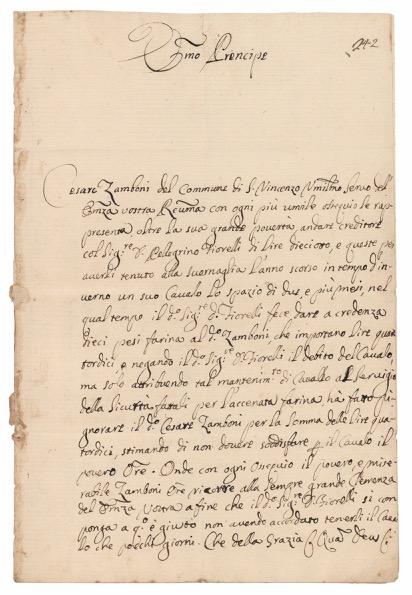 242
Emo Prencipe
Cesare Zamboni del Commune di S. Vincenzo Umilmo. servo dell'
Emza vostra Reuma con ogni più umile ossequio le rap=
presenta oltre la sua grande povertà, andar Creditore
col Sigre. D. Pellegrino Fiorelli di lire diecioto, e queste per
averli tenuto alla l'anno scorso in tempo d'in=
verno un suo Cavalo lo spazio di due, o più mesi, nel
qual tempo il do. Sigre. Do. Fiorelli fece dare a credenza
dieci pesi farina al do. Zamboni, che importano lire quat=
tordici, e negando il do. Sigre. Do. Fiorelli il debito del Cavalo,
ma solo attribuendo tal mantenimto. di Cavallo al servigio
della Sicurtà fatali per l'accenata farina, ha fatto pi=
gnorare il do. Cesare Zamboni per la somma delle lire qua=
tordici, stimando di non dovere soddisfare p il Cavalo il
povero Ore. Onde con ogni ossequio il povero, e mise=
rabile Zamboni Ore ricorre alla sempre grande Clemenza
dell' Emza Vostra a fine che il do. Sigre. Do. Fiorelli si com
ponga a qo. è giusto non avendo accordato tenerli il Cava=
lo che pochi giorni. Che della Grazia